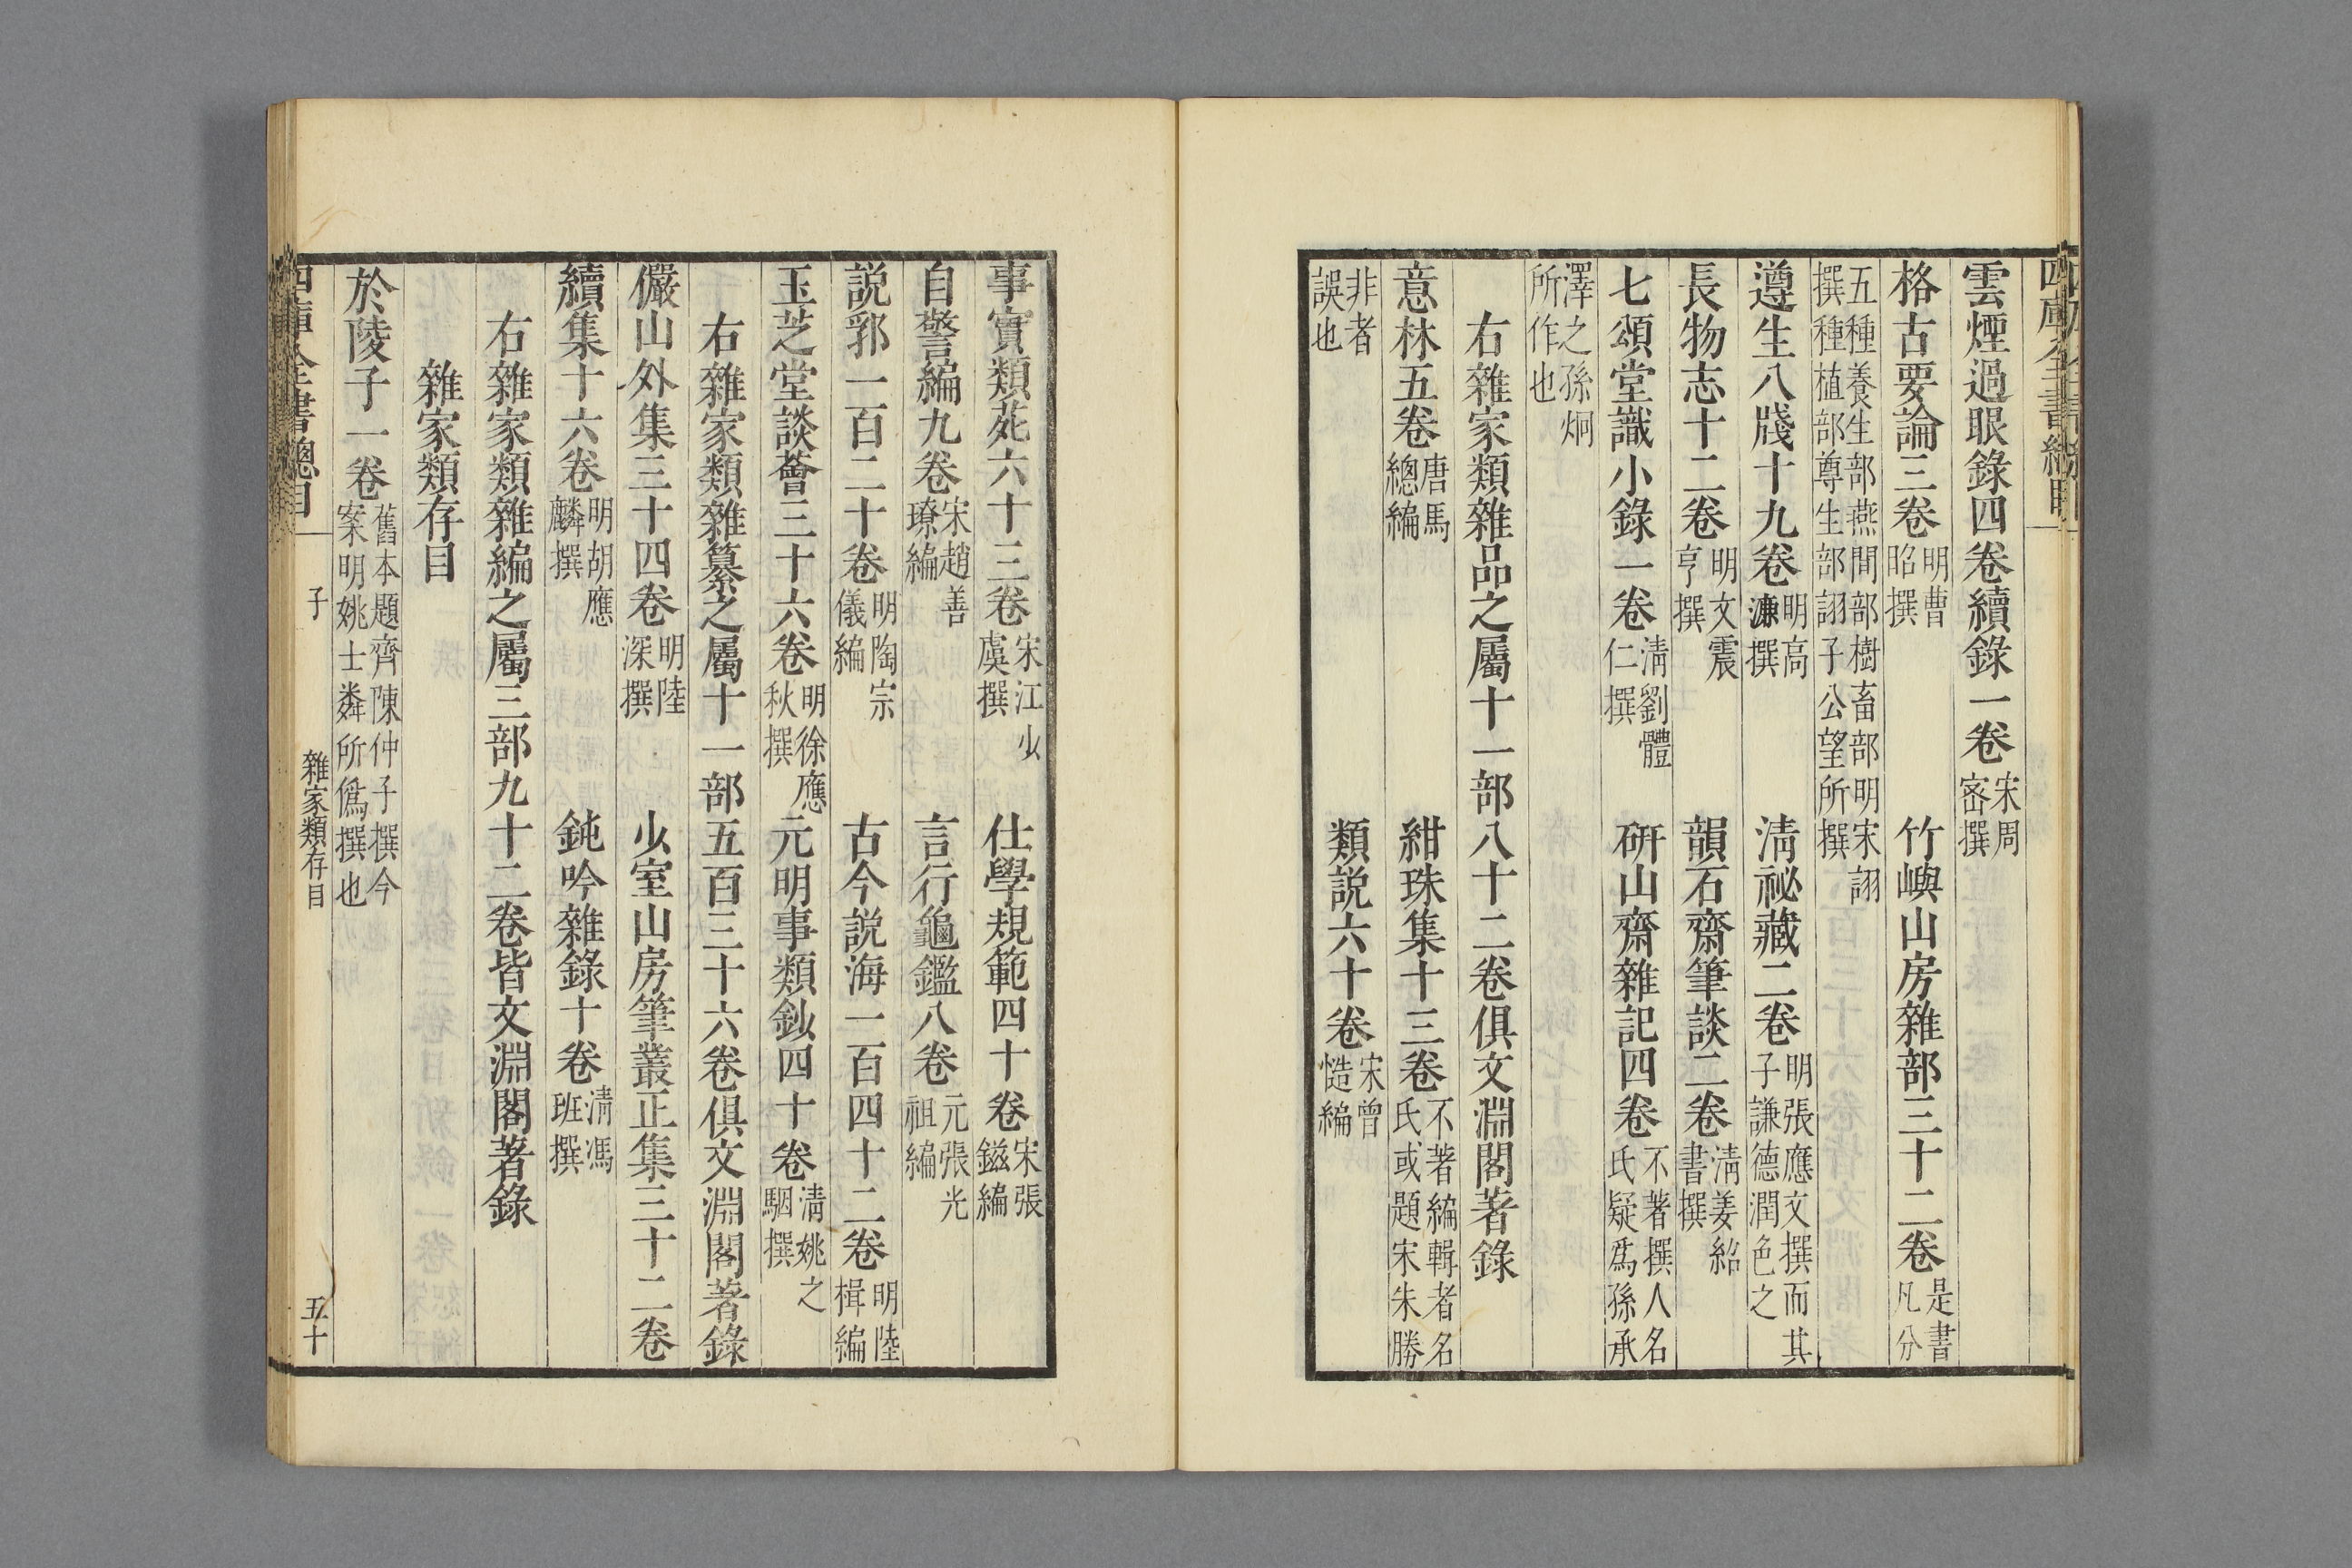 四庫全書總目
雲煙過眼錄四卷續錄一卷宋周密撰
格古要論三卷明曹昭撰　竹嶼山房雜部三十二卷是書凡分
五種養生部燕間部樹畜部明宋詡撰種植部尊生部詡子公望所撰
遵生八牋十九卷明高濂撰　清祕藏二卷明張應文撰而其子謙德潤色之
長物志十二卷明文震亨撰　韻石齋筆談二卷清姜紹書撰
七頌堂識小錄一卷清劉體仁撰　硏山齋雜記四卷不著撰人名氏疑爲孫承
澤之孫炯所作也
右雜家類雜品之屬十一部八十二卷俱文淵閣著錄
意林五卷唐馬總編　紺珠集十三卷不著編輯者名氏或題宋朱勝
非者誤也　類説六十卷宋曾慥編
事實類苑六十三卷宋江少虞撰　仕學規範四十卷宋張鎡編
自警編九卷宋趙善璙編　言行龜鑑八卷元張光祖編
説郛一百二十卷明陶宗儀編　古今説海一百四十二卷明陸楫編
玉芝堂談薈三十六卷明徐應秋撰　元明事類鈔四十卷淸姚之駰撰
右雜家類雜纂之屬十一部五百三十六卷俱文淵閣著錄
儼山外集三十四卷明陸深撰　少室山房筆叢正集三十二卷
續集十六卷明胡應麟撰　鈍吟雜錄十卷淸馮班撰
右雜家類雜編之屬三部九十二卷皆文淵閣著錄
雜家類存目
於陵子一卷舊本題齊陳仲子撰今案明姚士粦所僞撰也
四庫全書總目　子　雜家類存目　五十